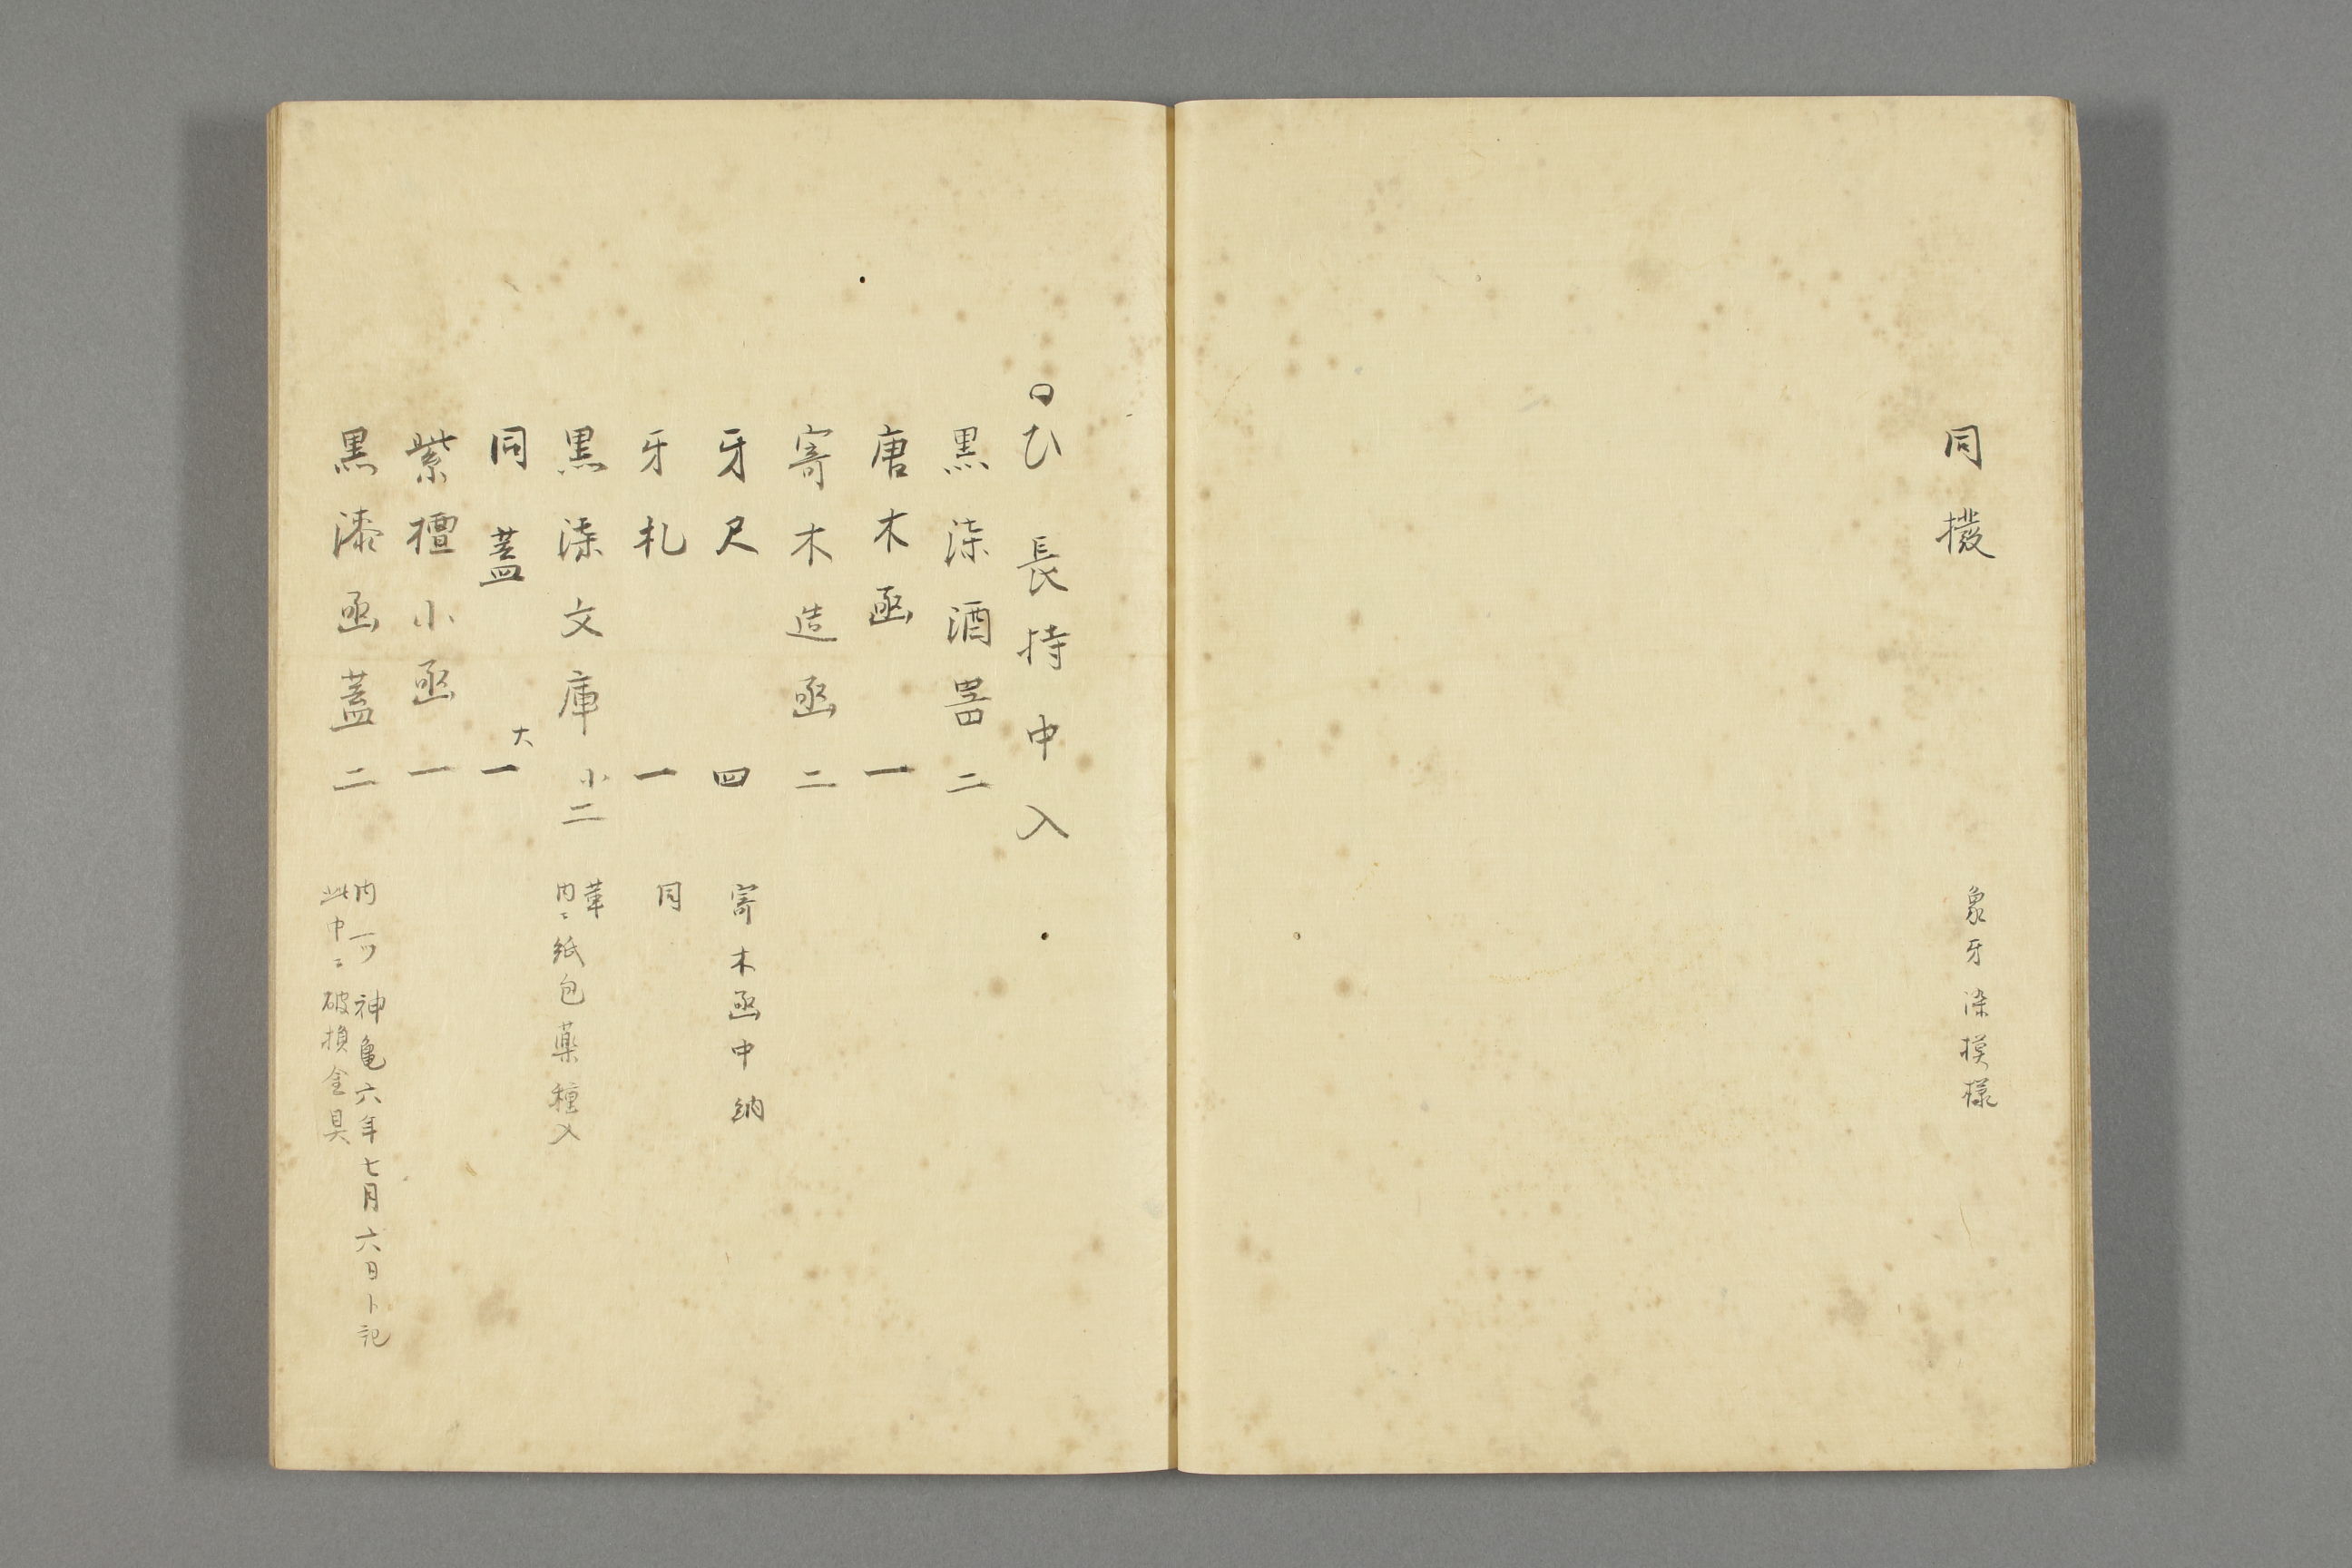 同撥　象牙染模様
○ひ長持中入
黒漆酒器二
唐木凾一
寄木造凾二
牙尺四　寄木凾中納
牙札一　同
黒漆文庫小二　華
内ニ紙包薬種入
同蓋大一
紫檀小凾一
黒漆凾蓋二　内一ツ神亀六年七月六日ト記
此中ニ破損金具